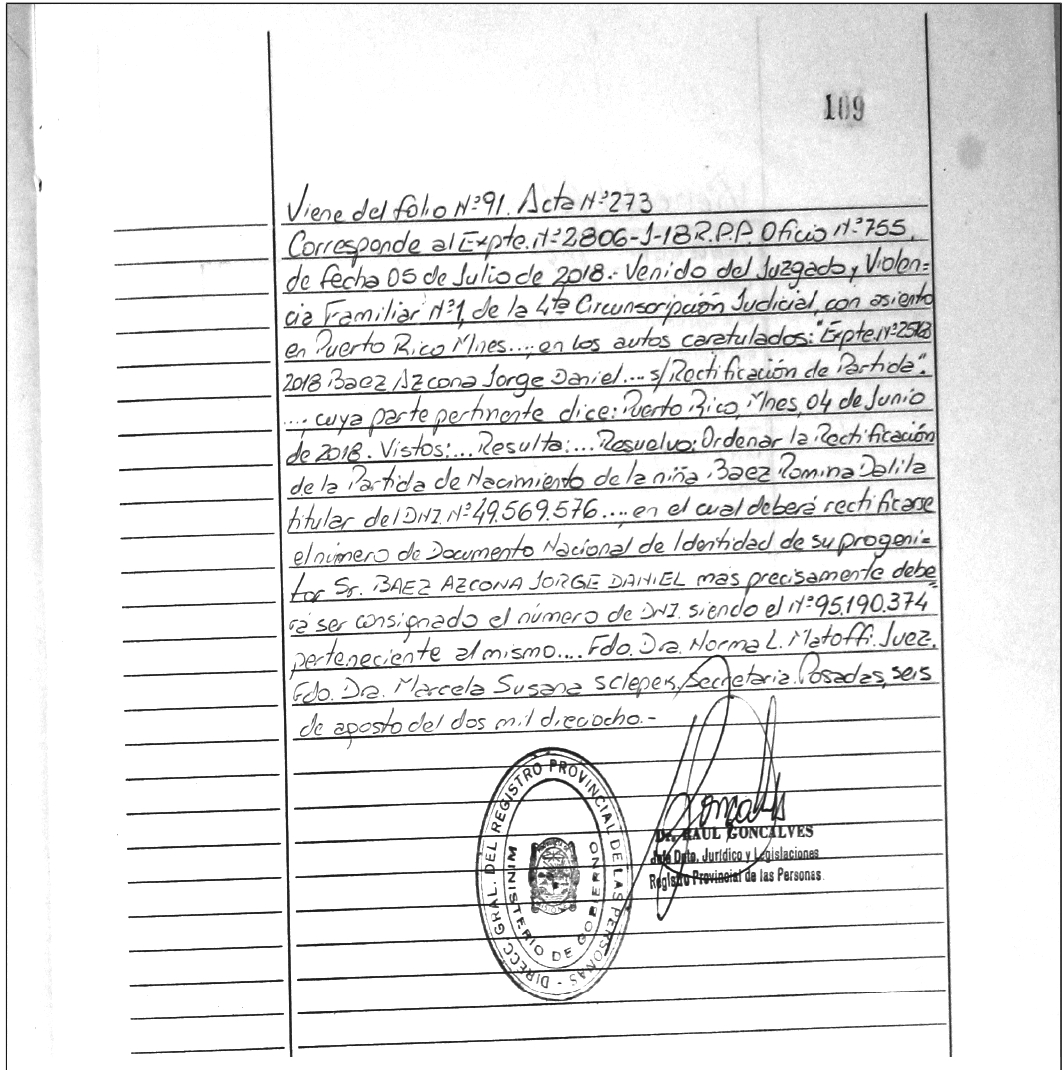 109
Viene del folio Nº91. Acta Nº273
Corresponde al Expte. Nº2806-J-18 R.P.P. Oficio Nº755.
de fecha 05 de Julio de 2018.- Venido del Juzgado y Violen=
cia Familiar Nº1, de la 4ta Circunscripción Judicial, con asiento
en Puerto Rico Mnes..., en los autos caratulados: "Expte. Nº
2018 Baez Azcona Jorge Daniel.... s/Rectificación de Partida".
.... cuya parte pertinente dice: Puerto Rico, Mnes, 04 de Junio
de 2018. Vistos:... Resulta:... Resuelvo: Ordenar la Rectificación
de la Partida de Nacimiento de la niña Baez Romina Dalila
titular del DNI. Nº49.569.576...., en el cual deberá rectificarse
el número de Documento Nacional de Identidad de su progeni=
tor Sr. BAEZ AZCONA JORGE DANIEL mas precisamente debe
rá ser consignado el número de DNI. siendo el Nº95.190.374
perteneciente al mismo.... Fdo. Dra. Norma L. Matoffi. Juez.
Fdo. Dra. Marcela Susana Sclepek, Secretaria. Posadas, seis
de agosto del dos mil dieciocho.-
DIRECC. GRAL. DEL REGISTRO PROVINCIAL DE LAS PERSONAS -
MINISTERIO DE GOBIERNO
Dr. RAUL GONCALVES
Jefe Dpto. Jurídico y Legislaciones
Registro Provincial de las Personas